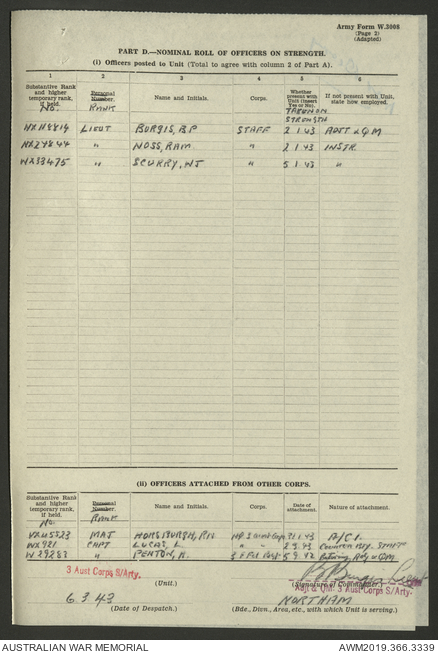 7
Army Form W.3008
(Page 2)
(Adapted)
PART D.—NOMINAL ROLL OF OFFICERS ON STRENGTH.
(i) Officers posted to Unit (Total to agree with column 2 of Part A).
1 2 3 4 5 6
Substantive Rank and higher temporary rank, if held. Personal Number. Name and Initials. Corps. Whether present with Unit (Insert Yes or No). If not present with Unit, state how employed.
No. RANK TAKEN ON STRENGTH
LIEUT BURGIS, BP STAFF 2 1 43 ADJT & QM
" NOSS, RAM " 2 1 43 INSTR.
WX33475 " SCURRY, WJ " 5 1 43 "
(ii) OFFICERS ATTACHED FROM OTHER CORPS.
Substantive Rank and higher temporary rank, if held. Personal Number. Name and Initials. Corps. Date of attachment. Nature of attachment.
No. RANK
MAJ HORSBURGH, 43
CAPT LUCAS, L " 43
" PENTON, K.
3 Aust Corps S/Arty.
(Unit.) (Signature of Commander.)
Adjt & QM. 3 Aust Corps S/Arty.
6 3 43 NORTHAM
(Date of Despatch.) (Bde., Divn., Area, etc., with which Unit is serving.)
AUSTRALIAN WAR MEMORIAL AWM2019.366.3339